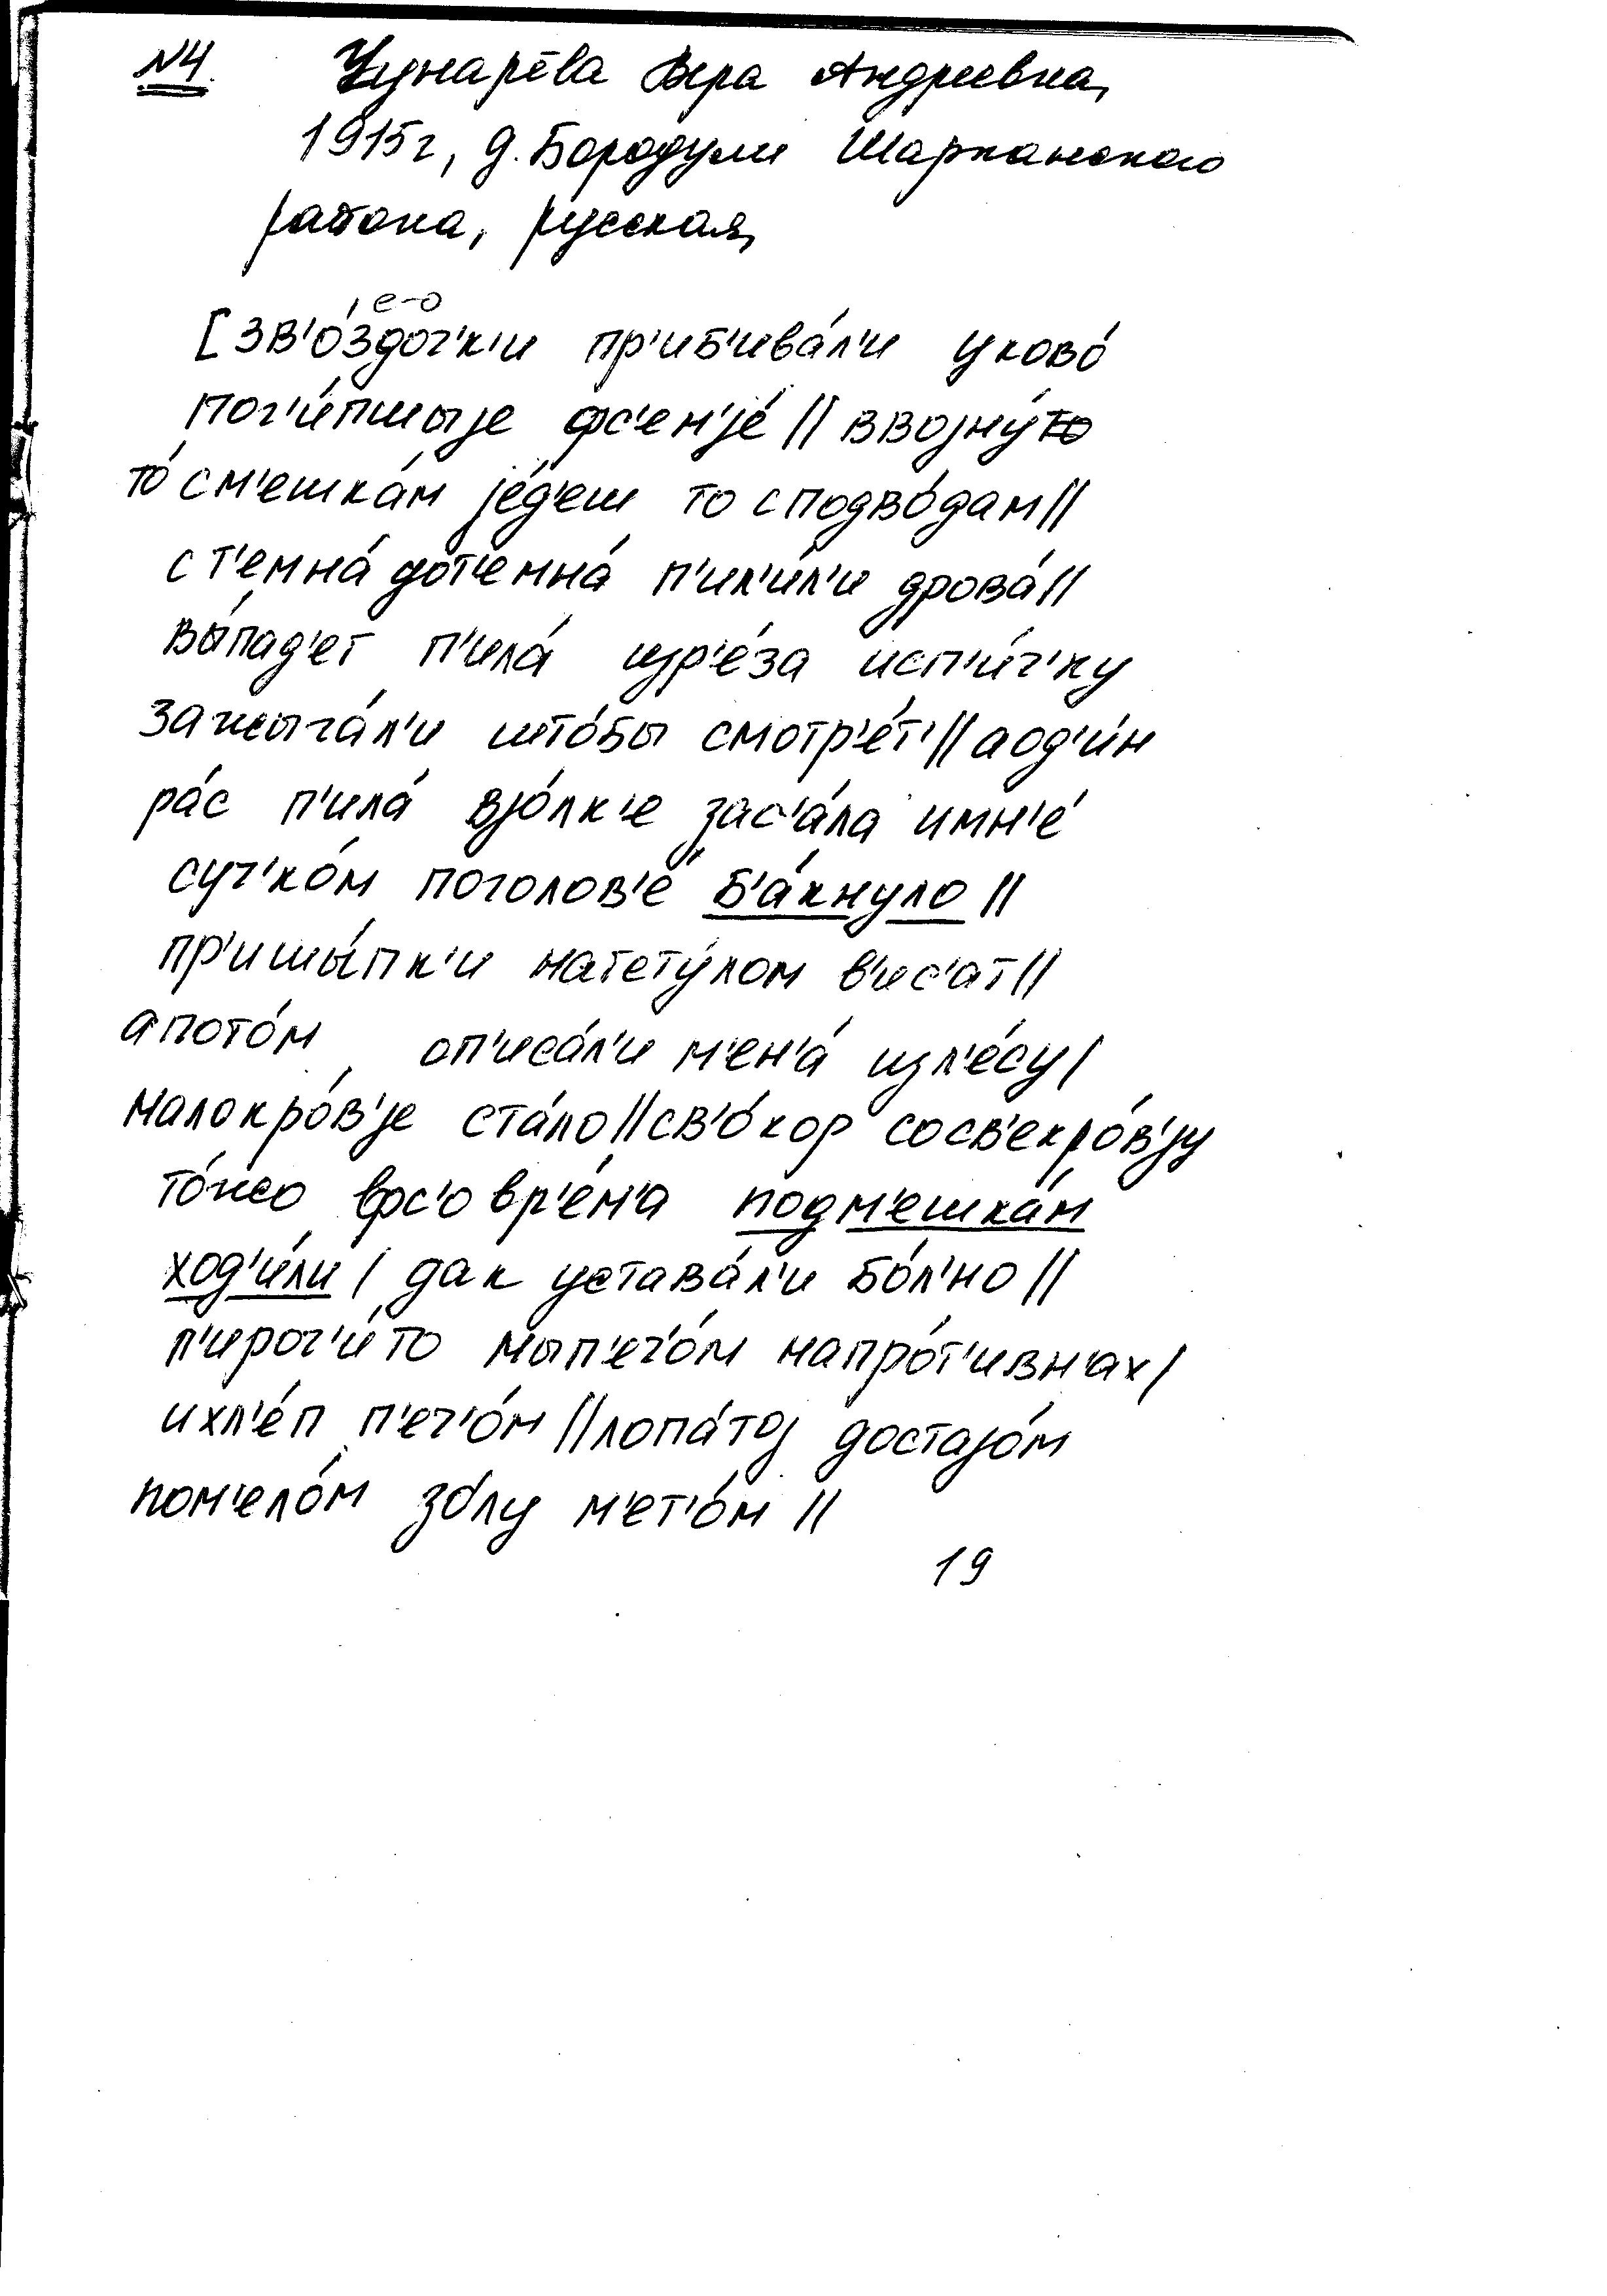 №4. Чунарёва Вера Андреевна,
1915г, д. Бородули Шарканского
района, русская,
е-о
[зв'о́здоч'к'и пр'иб'ива́л'и уково́
пог'и́пшыjе фс'ем'jе́ // ввоjну́то
то́ см'ешка́м jе́д'еш то сподво́дам //
ст'емна́ дот'емна́ п'ил'и́л'и дрова́ //
вы́пад'ет п'ила́ изр'е́за исп'и́ч'ку
зажыга́л'и што́бы смотр'е́т' // аод'и́н
ра́с п'ила́ вjо́лк'е зас'а́ла имн'е́
суч'ко́м поголов'е́ б'а́кнуло //
пр'ишы́пк'и натету́лом в'ис'ат //
апото́м оп'иса́л'и м'ен'а́ изл'е́су /
малокро́в'jе ста́ло // св'о́кор сосв'екро́в'jу
то́жо фс'о вр'е́м'а подм'ешка́м
ход'и́ли / дак устава́л'и бо́л'но //
п'ирог'и́то мып'еч'о́м напро́т'ивн'ах /
ихл'е́п п'еч'о́м // лопа́тоj достаjо́м
пом'ело́м зо́лу м'ет'о́м //
19